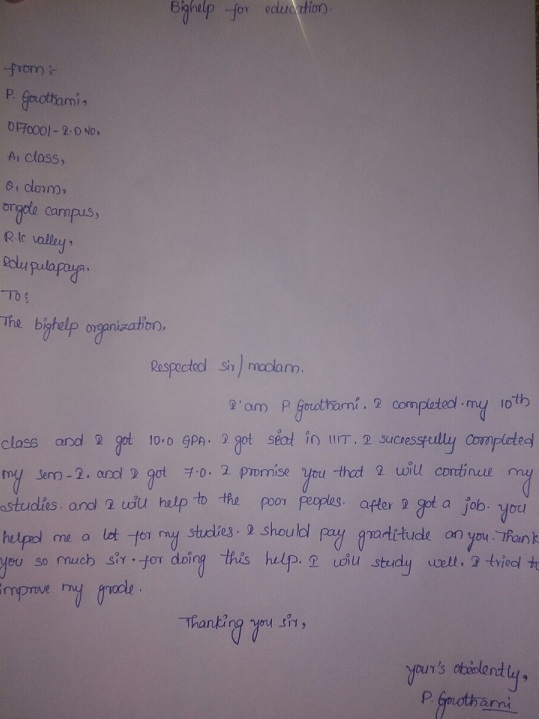 Bighelp for education.
from:-
P. Gowthami,
OF70001-I.D NO,
A1 class,
G1 dorm,
ongole campus,
R.K valley,
Idupulapaya.
To:
The bighelp organization,
Respected sir/madam.
I'am P. Gowthami. I completed my 10th
class and I got 10.0 GPA. I got seat in IIIT. I sucessfully completed
my sem-2. and I got 7.0. I promise you that I will continue my
studies. and I will help to the poor peoples. after I got a job. you
helped me a lot for my studies. I should pay graditude on you. Thank
you so much sir. for doing this help. I will study well. I tried to
improve my grade.
Thanking you sir,
your's obediently,
P. Gowthami